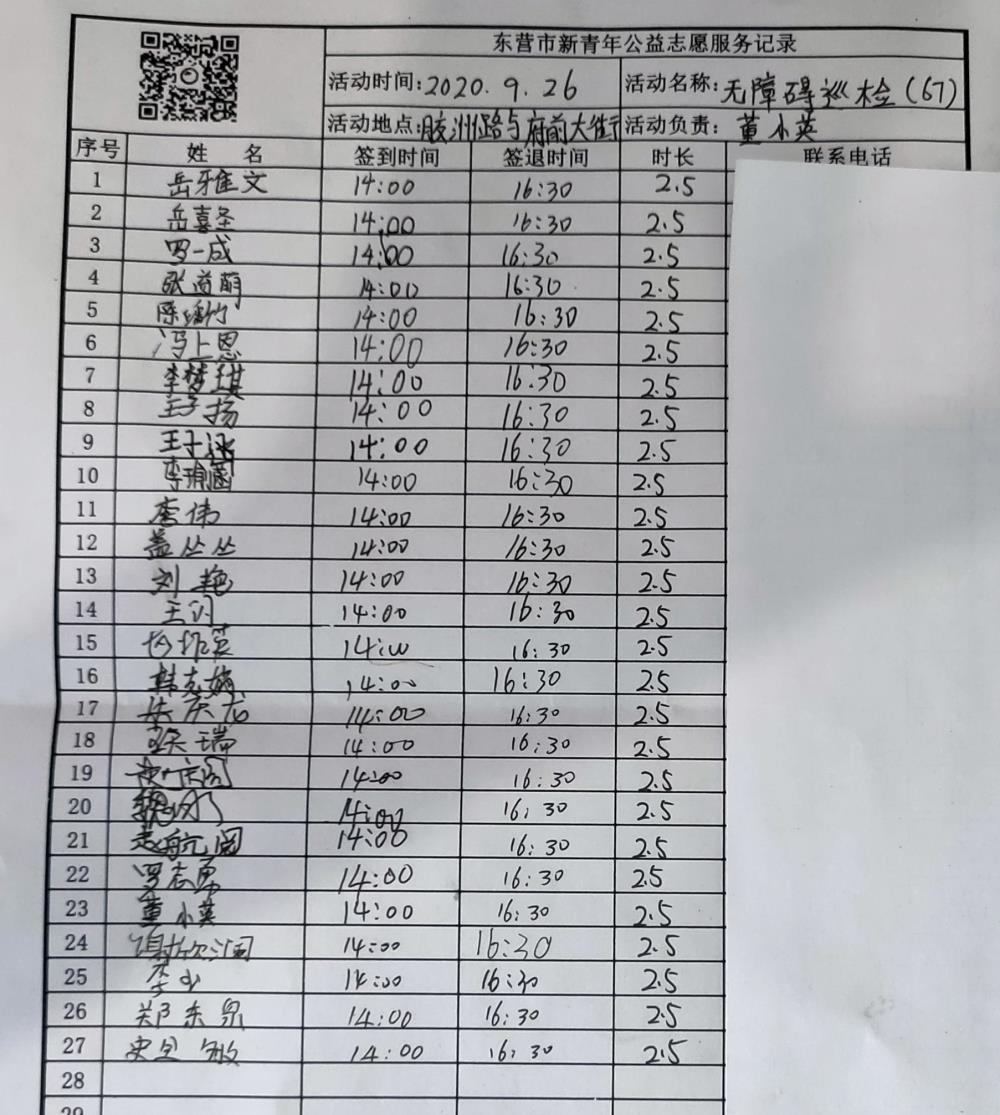 东营市新青年公益志愿服务记录
活动时间:2020.9.26 活动名称:无障碍巡检(67)
活动地点:胶州路与府前大街 活动负责:董小英
序号 姓 名 签到时间 签退时间 时长 联系电话
1 岳雅文 14:00 16:30 2.5
2 岳喜圣 14:00 16:30 2.5
3 罗一成 14:00 16:30 2.5
4 张萌 14:00 16:30 2.5
5 陈竹 14:00 16:30 2.5
6 冯上恩 14:00 16:30 2.5
7 李梦琪 14:00 16:30 2.5
8 王子扬 14:00 16:30 2.5
9 王子涵 14:00 16:30 2.5
10 李瑜菡 14:00 16:30 2.5
11 李伟 14:00 16:30 2.5
12 盖丛丛 14:00 16:30 2.5
13 刘艳 14:00 16:30 2.5
14 王 14:00 16:30 2.5
15 14:00 16:30 2.5
16 韩志娟 14:00 16:30 2.5
17 朱庆龙 14:00 16:30 2.5
18 瑞 14:00 16:30 2.5
19 14:00 16:30 2.5
20 14:00 16:30 2.5
21 航 14:00 16:30 2.5
22 罗志勇 14:00 16:30 2.5
23 董小英 14:00 16:30 2.5
24 谢欣润 14:00 16:30 2.5
25 李 14:00 16:30 2.5
26 郑东泉 14:00 16:30 2.5
27 史全敏 14:00 16:30 2.5
28
29